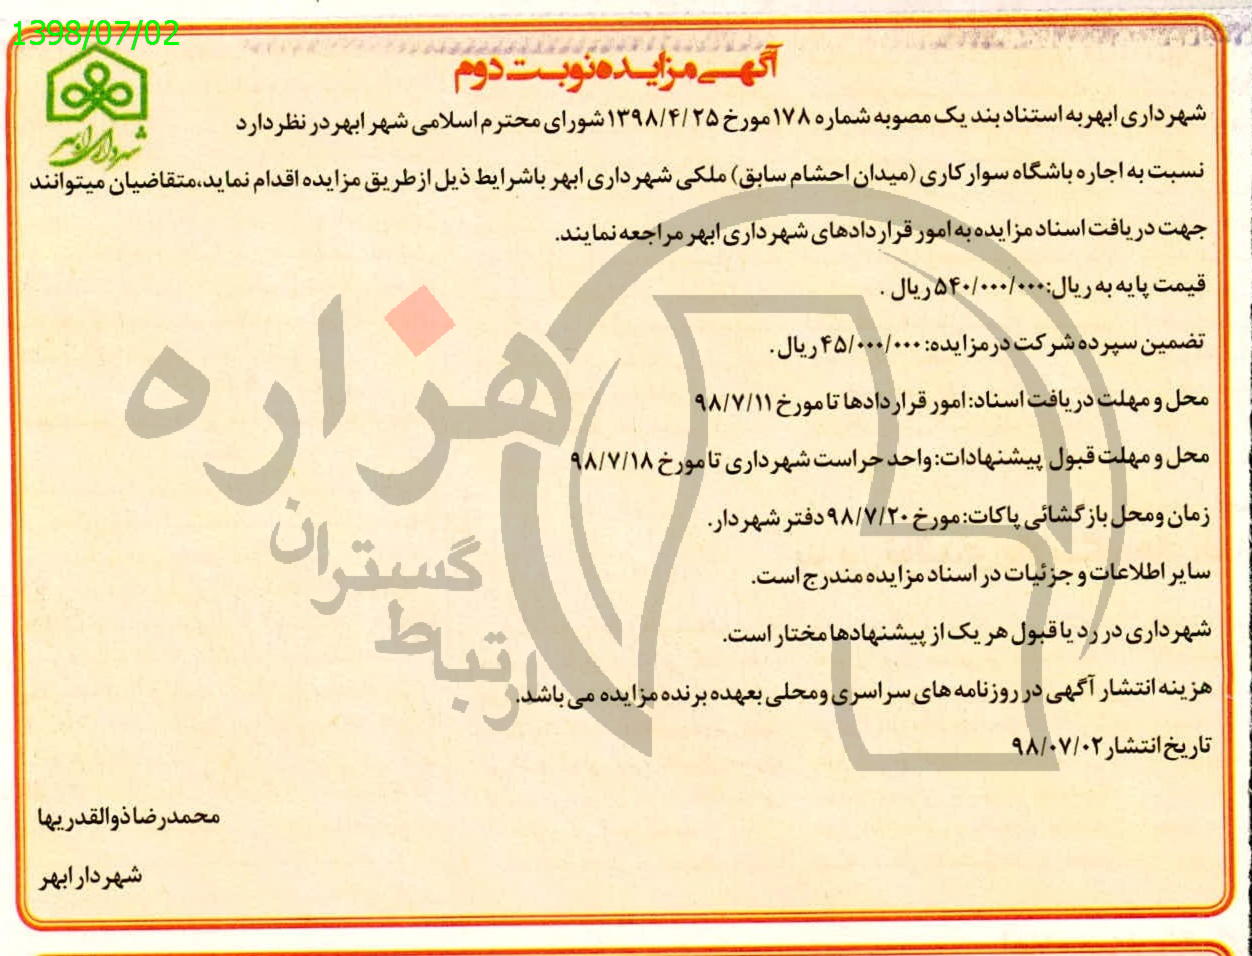 1398/07/02
آگهی مزایده نوبت دوم
شهرداری ابهر
شهرداری ابهر به استناد بند یک مصوبه شماره ۱۷۸ مورخ ۱۳۹۸/۴/۲۵ شورای محترم اسلامی شهر ابهر در نظر دارد
نسبت به اجاره باشگاه سوارکاری (میدان احشام سابق) ملکی شهرداری ابهر باشرایط ذیل ازطریق مزایده اقدام نماید،متقاضیان میتوانند
جهت دریافت اسناد مزایده به امور قراردادهای شهرداری ابهر مراجعه نمایند.
قیمت پایه به ریال:۵۴۰/۰۰۰/۰۰۰ ریال .
تضمین سپرده شرکت درمزایده: ۴۵/۰۰۰/۰۰۰ ریال.
محل و مهلت دریافت اسناد: امور قراردادها تا مورخ ۹۸/۷/۱۱
محل و مهلت قبول پیشنهادات: واحد حراست شهرداری تا مورخ ۹۸/۷/۱۸
زمان ومحل بازگشائی پاکات: مورخ ۹۸/۷/۲۰ دفتر شهردار.
سایر اطلاعات و جزئیات در اسناد مزایده مندرج است.
شهرداری در رد یا قبول هر یک از پیشنهادها مختار است.
هزینه انتشار آگهی در روزنامه های سراسری ومحلی بعهده برنده مزایده می باشد.
تاریخ انتشار ۹۸/۰۷/۰۲
محمدرضا ذوالقدریها
شهردار ابهر
هزاره
گستران
ارتباط